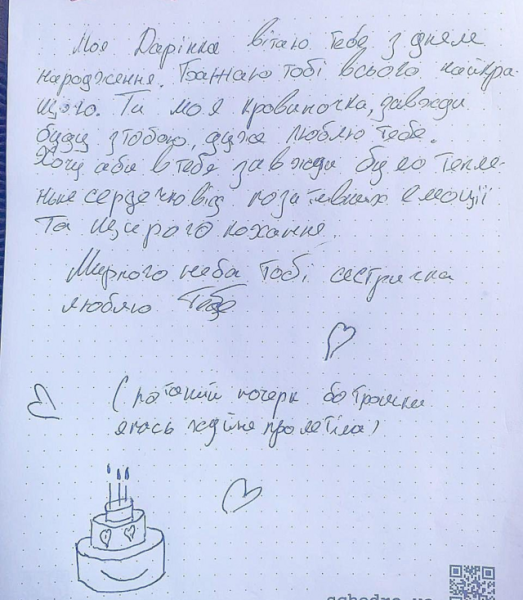 Моя Дарінка вітаю тебе з днем
народження. Бажаю тобі всього найкра-
щого. Ти моя кровиночка, завжди
буду з тобою, дуже люблю тебе.
Хочу аби в тебе завжди було тепле-
ньке сердечко від позитивних емоції
та щирого кохання.
Мирного неба тобі сестричка
люблю тебе
(поганий почерк бо трошки
якась
пролетіла)